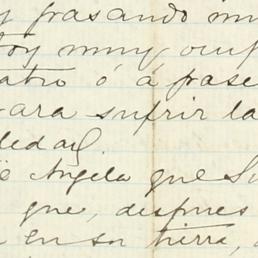 y pasando mu
toy muy ocup
eatro ó á pase
para sufrir la
ledad.
é Angela que Su
que, despues
en su tierra,